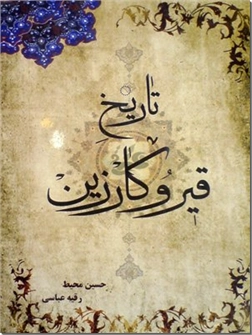 تاریخ
قیر و کارزین
حسین محیط
رقیه عباسی